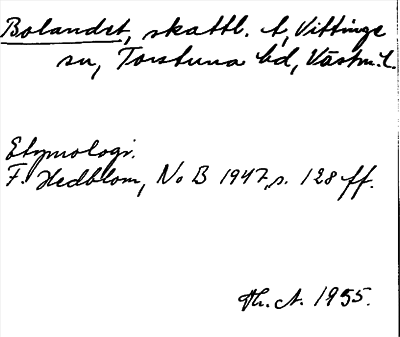 Bolandet, skattl. t, Vittinge
sn, Torstuna hd, Västm. l.
Etymologi.
F. Hedblom, NoB 1947, s. 128 ff.
Th. A. 1955.